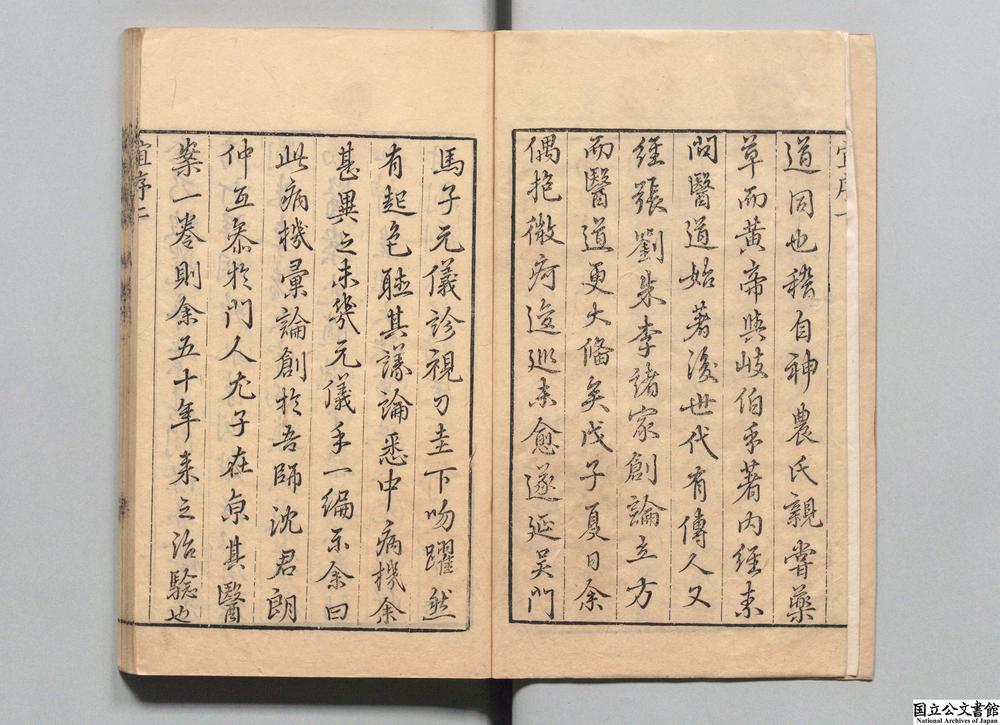 道同也稽自神農氏親嘗藥
草而黃帝與岐伯手著內經素
問醫道始著後世代有傳人又
經張劉朱李諸家創論立方
而醫道更大備矣戊子夏日余
偶抱微疴逡巡未愈遂延吳門
馬子元儀診視刀圭下吻躍然
有起色聴其議論悉中病機余
甚異之未幾元儀手一編示余曰
此病機彙論創於吾師沈君朗
仲互叅於門人尤子在京其醫
案一卷則余五十年来之治驗也
序二
国立公文書館
National Archives of Japan